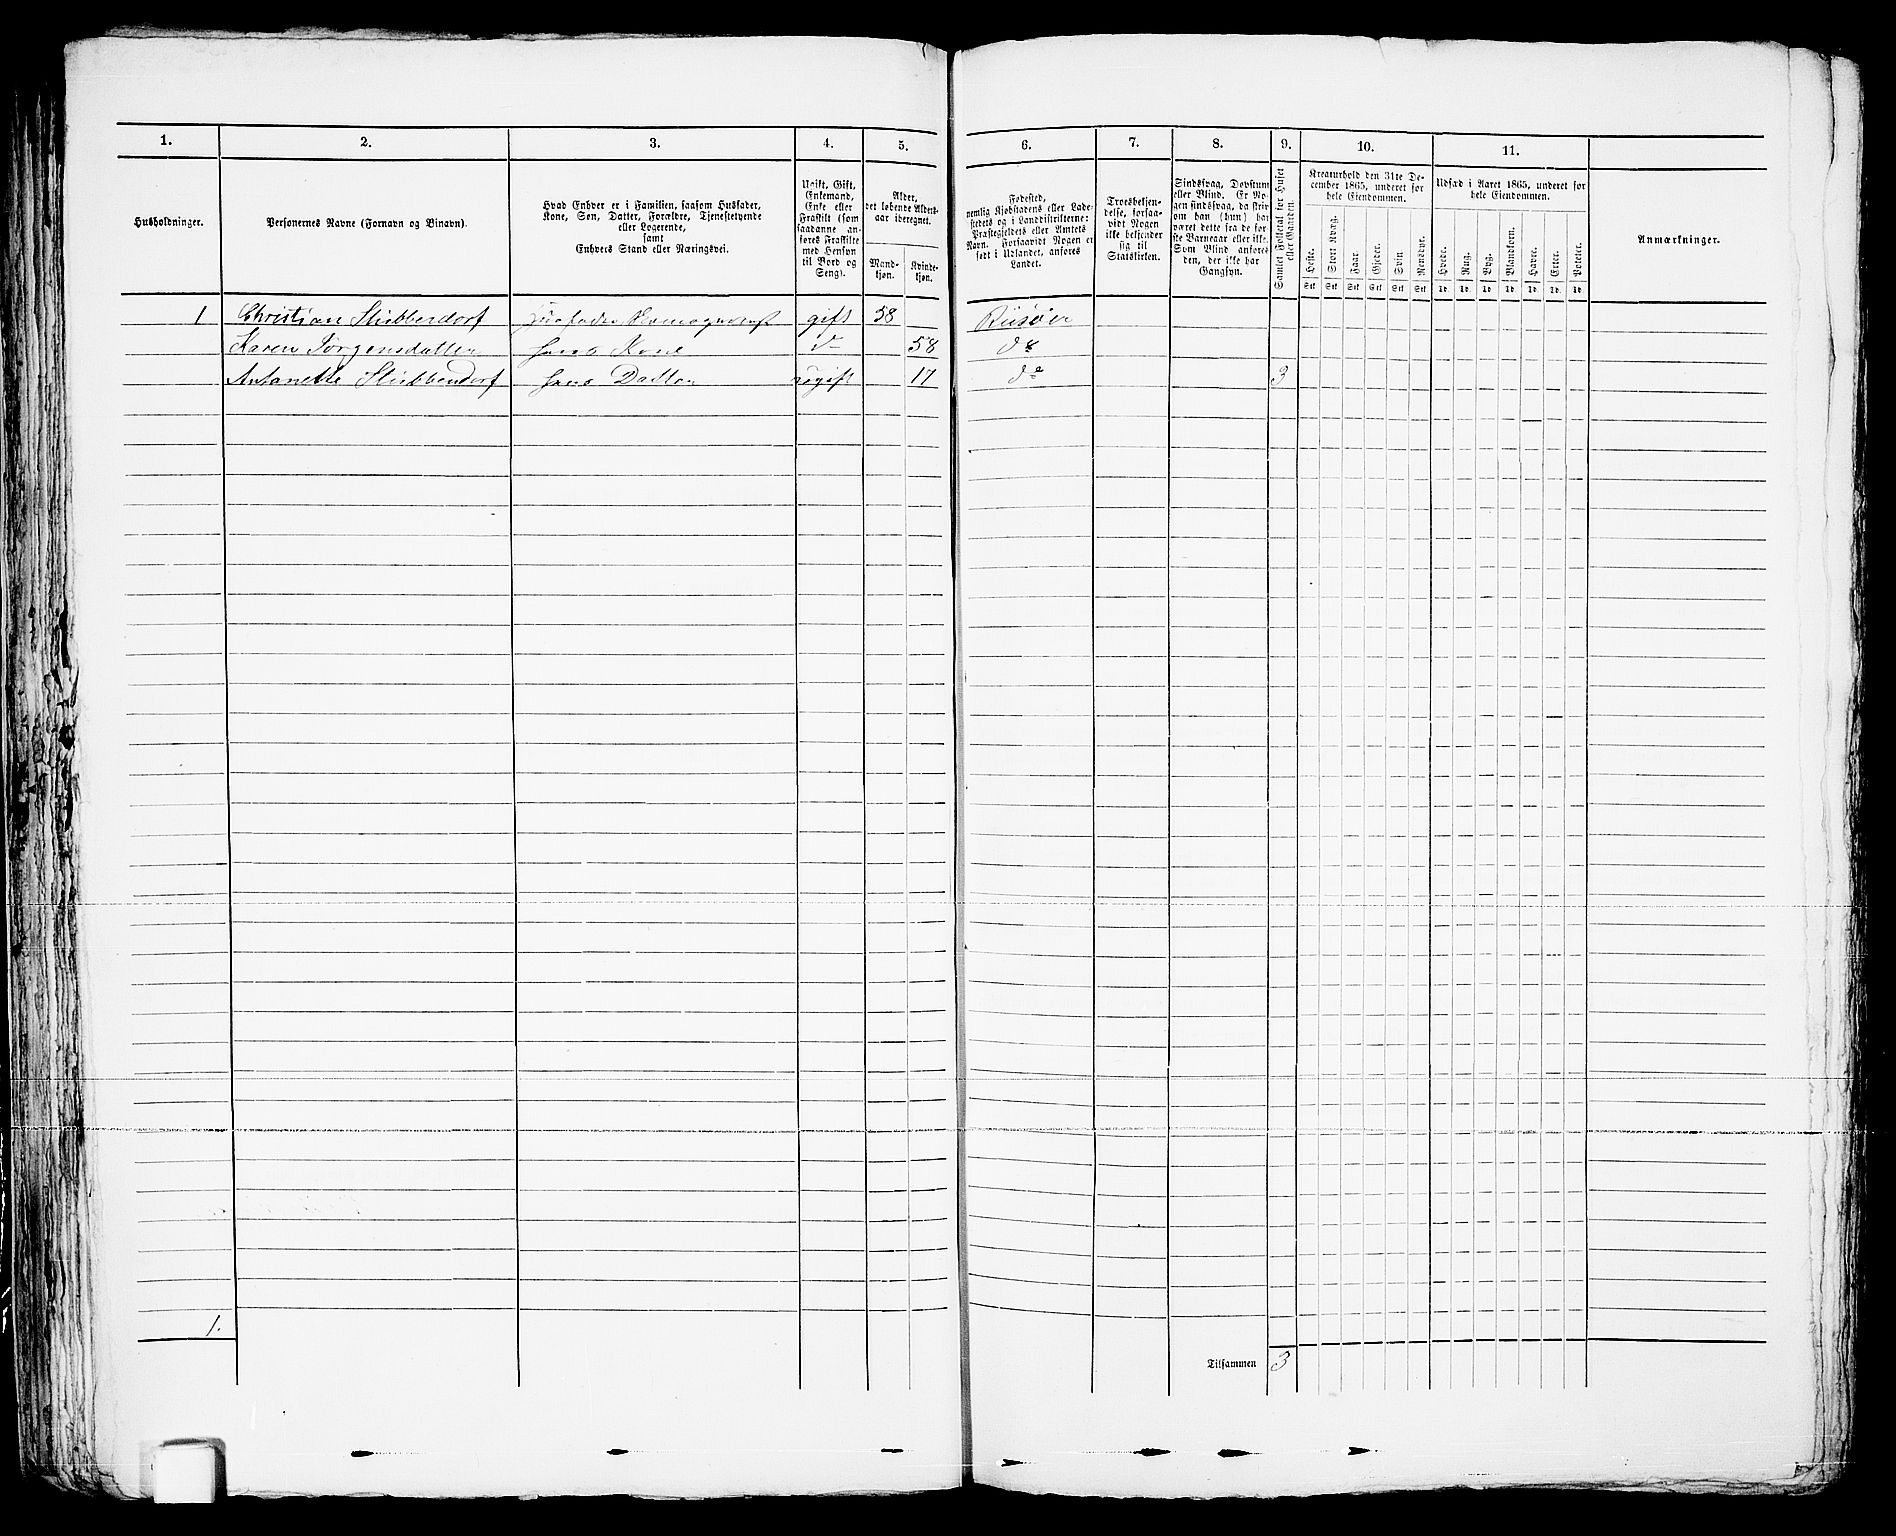 1. 2. 3. 4. 5. 6. 7. 8. 9. 10. 11.
Husholdninger.
Personernes Navne (Fornavn og Binavn).
Hvad Enhver er i Familien, saasom Husfader,
Kone, Søn, Datter, Forældre, Tjenestetyende
eller Logerende,
samt
Enhvers Stand eller Næringsvei.
Ugift, Gift,
Enkemand,
Enke eller
Fraskilt (som
saadanne an-
føres Fraskilte
med Hensyn
til Bord og
Seng).
Alder,
det løbende Alders-
aar iberegnet.
Mand-
kjøn.
Kvinde-
kjøn.
Fødested,
nemlig Kjøbstadens eller Lade-
stedets og i Landdistrikterne:
Præstegjeldets eller Amtets
Navn. Forsaavidt Nogen er
født i Udlandet, anføres
Landet.
Troesbekjen-
delse, forsaa-
vidt Nogen
ikke bekjender
sig til
Statskirken.
Sindssvag, Døvstum
eller Blind. Er No-
gen sindssvag, da skriv
om han (hun) har
været dette fra de før-
ste Barneaar eller ikke.
Som Blind anføres
den, der ikke har
Gangsyn.
Samlet Folketal for Huset
eller Gaarden.
Kreaturhold den 31te De-
cember 1865, underet for
hele Eiendommen.
Heste. Stort Kvæg. Faar. Gjeder. Svin Rensdyr.
Stk Stk Stk Stk Stk Stk
Udsæd i Aaret 1865, underet for
hele Eiendommen.
Hvede. Rug. Byg. Blandkorn. Havre. Erter. Poteter.
Td. Td. Td. Td. Td. Td. Td.
Anmærkninger.
1 Christian Stubbendorf gift 58 Riisøer
Karen Jørgensdatter hans Kone do 58 do
Antonette Stubbendorf hans Datter ugift 17 do 3
1.
Tilsammen 3